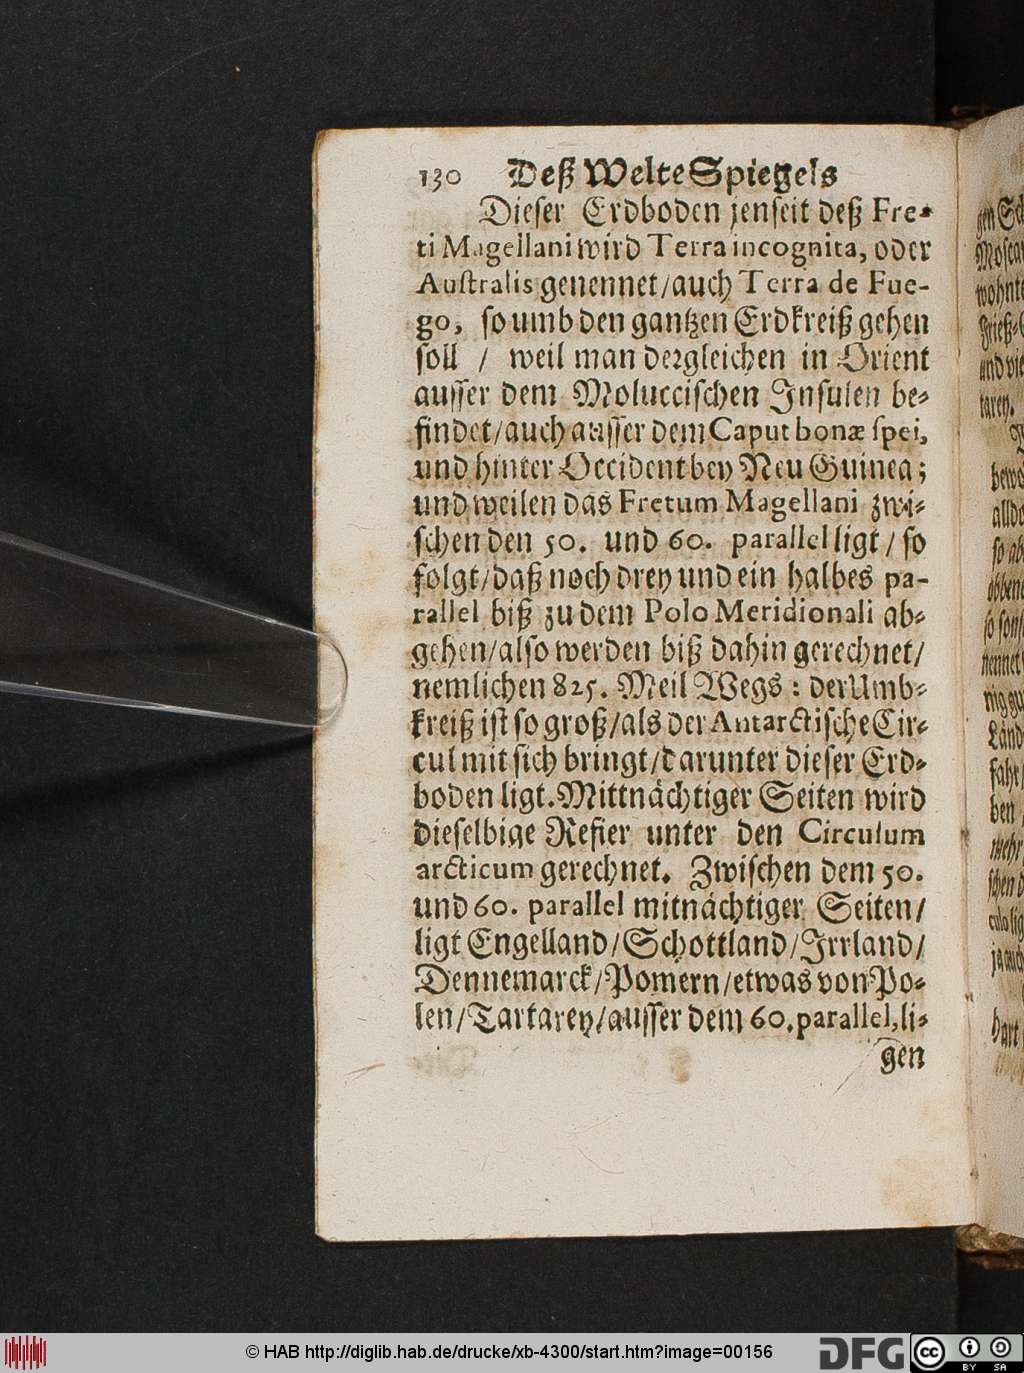 130 Deß Welte Spiegels
Dieser Erdboden jenseit deß Fre-
ti Magellani wird Terra incognita, oder
Australis genennet/auch Terra de Fue-
go, so umb den gantzen Erdkreiß gehen
soll / weil man dergleichen in Orient
ausser dem Moluccischen Insulen be-
findet/auch ausser dem Caput bonæ spei,
und hinter Occident bey Neu Guinea;
und weilen das Fretum Magellani zwi-
schen den 50. und 60. parallel ligt / so
folgt/daß noch drey und ein halbes pa-
rallel biß zu dem Polo Meridionali ab-
gehen/also werden biß dahin gerechnet/
nemlichen 825. Meil Wegs : der Umb-
kreiß ist so groß/als der Antarctische Cir-
cul mit sich bringt/darunter dieser Erd-
boden ligt. Mittnächtiger Seiten wird
dieselbige Refier unter den Circulum
arcticum gerechnet. Zwischen dem 50.
und 60. parallel mitnächtiger Seiten/
ligt Engelland/Schottland/Irrland/
Dennemarck/Pomern/etwas von Po-
len/Tartarey/ausser dem 60. parallel, li-
gen
© HAB http://diglib.hab.de/drucke/xb-4300/start.htm?image=00156
DFG
cc
BY SA